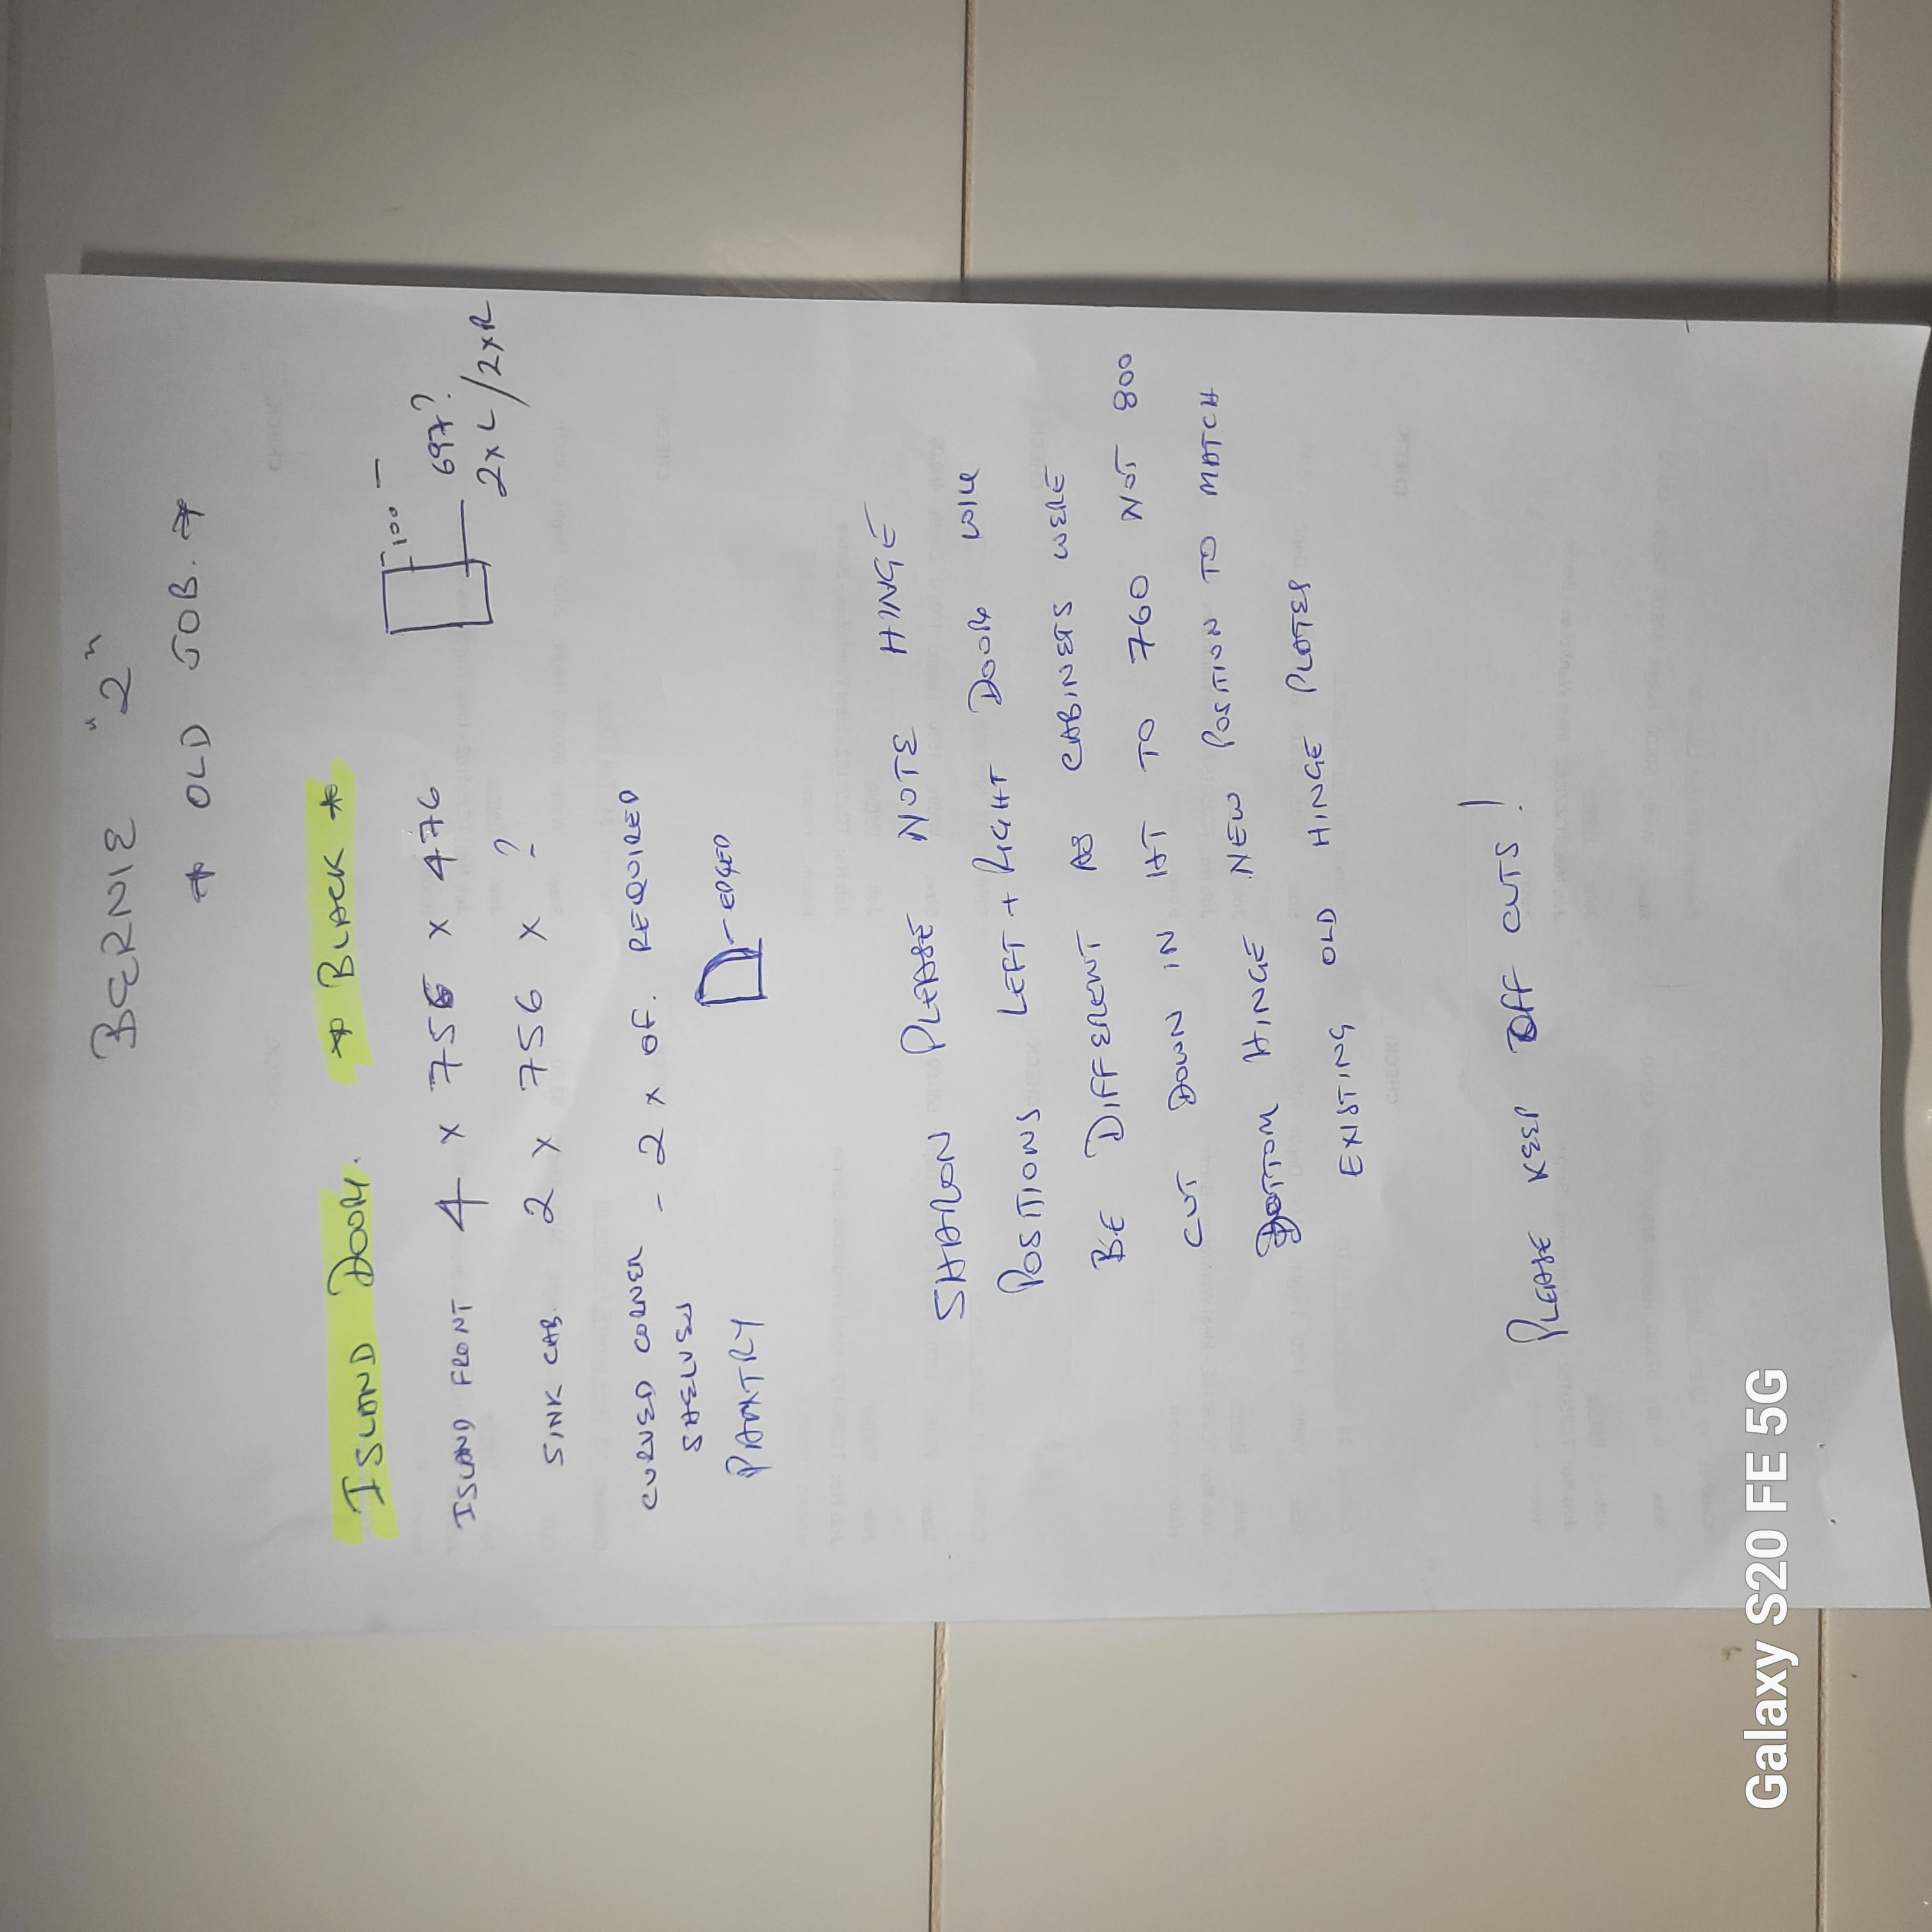 BERNIE "2"
* OLD JOB. *
ISLAND DOOR. * BLACK *
100
ISLAND FRONT 4 x 756 x 476
697?
2xL/2xR
SINK CAB. 2 x 756 x ?
CURVED CORNER - 2 x OF. REQUIRED
SHELVES
PANTRY
- EDGED
SHARON PLEASE NOTE HINGE
POSITIONS LEFT + RIGHT DOOR WILL
BE DIFFERENT AS CABINETS WERE
CUT DOWN IN HT TO 760 NOT 800
BOTTOM HINGE NEW POSITION TO MATCH
EXISTING OLD HINGE PLATES
PLEASE KEEP OFF CUTS!
Galaxy S20 FE 5G